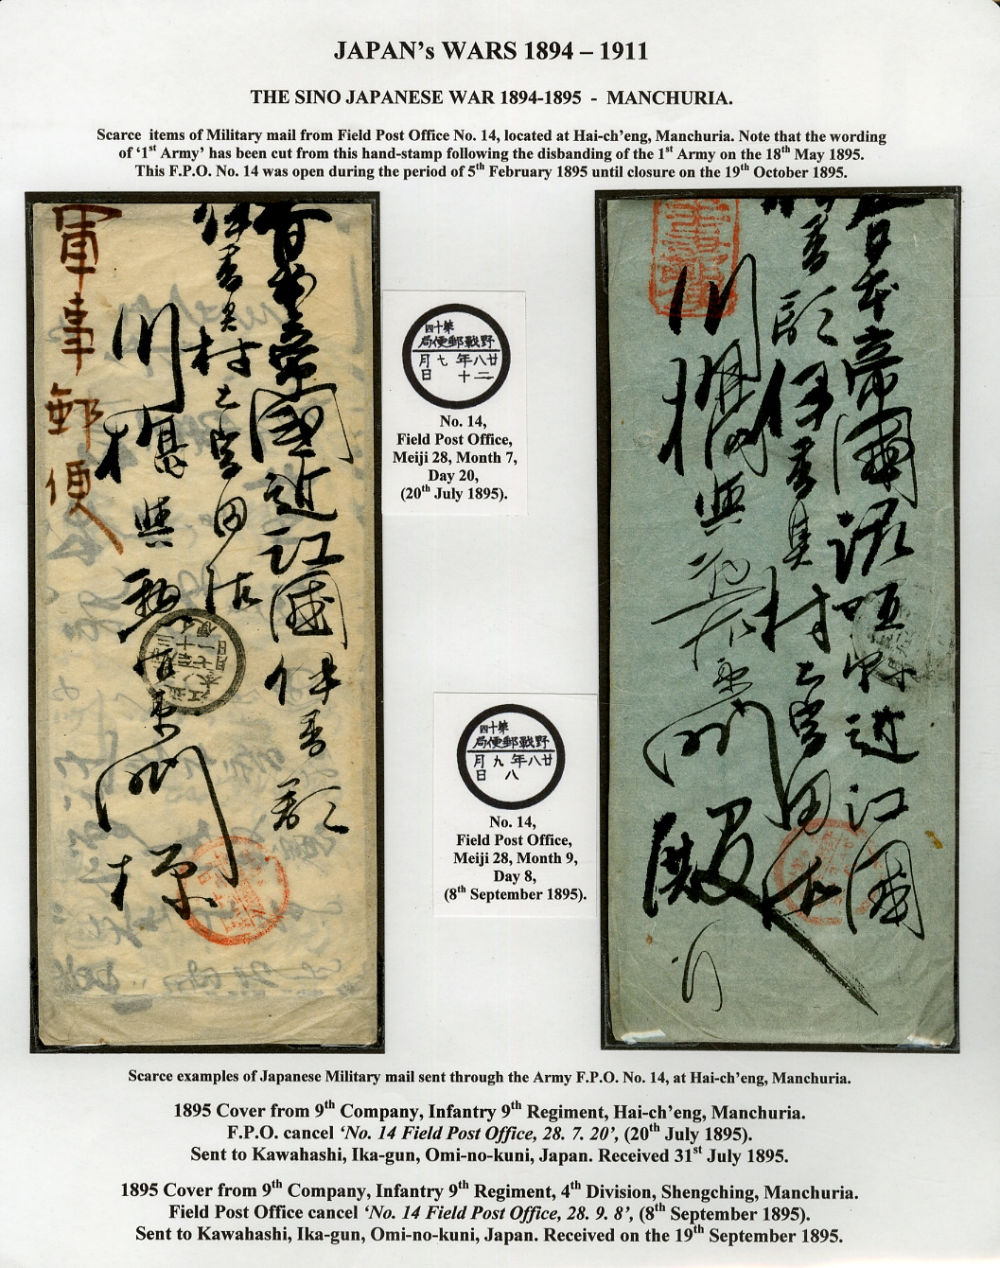 JAPAN's WARS 1894 – 1911
THE SINO JAPANESE WAR 1894-1895 - MANCHURIA.
Scarce items of Military mail from Field Post Office No. 14, located at Hai-ch'eng, Manchuria. Note that the wording
of '1st Army' has been cut from this hand-stamp following the disbanding of the 1st Army on the 18th May 1895.
This F.P.O. No. 14 was open during the period of 5th February 1895 until closure on the 19th October 1895.
日本帝國近江國伊香郡
伊香具村
川橋與
軍事郵便
第十四
野戰郵便局
廿八年七月
二十日
No. 14,
Field Post Office,
Meiji 28, Month 7,
Day 20,
(20th July 1895).
日本帝國滋賀縣近江國
郡伊香具村
川橋與
殿
第十四
野戰郵便局
廿八年九月
八日
No. 14,
Field Post Office,
Meiji 28, Month 9,
Day 8,
(8th September 1895).
Scarce examples of Japanese Military mail sent through the Army F.P.O. No. 14, at Hai-ch'eng, Manchuria.
1895 Cover from 9th Company, Infantry 9th Regiment, Hai-ch'eng, Manchuria.
F.P.O. cancel 'No. 14 Field Post Office, 28. 7. 20', (20th July 1895).
Sent to Kawahashi, Ika-gun, Omi-no-kuni, Japan. Received 31st July 1895.
1895 Cover from 9th Company, Infantry 9th Regiment, 4th Division, Shengching, Manchuria.
Field Post Office cancel 'No. 14 Field Post Office, 28. 9. 8', (8th September 1895).
Sent to Kawahashi, Ika-gun, Omi-no-kuni, Japan. Received on the 19th September 1895.